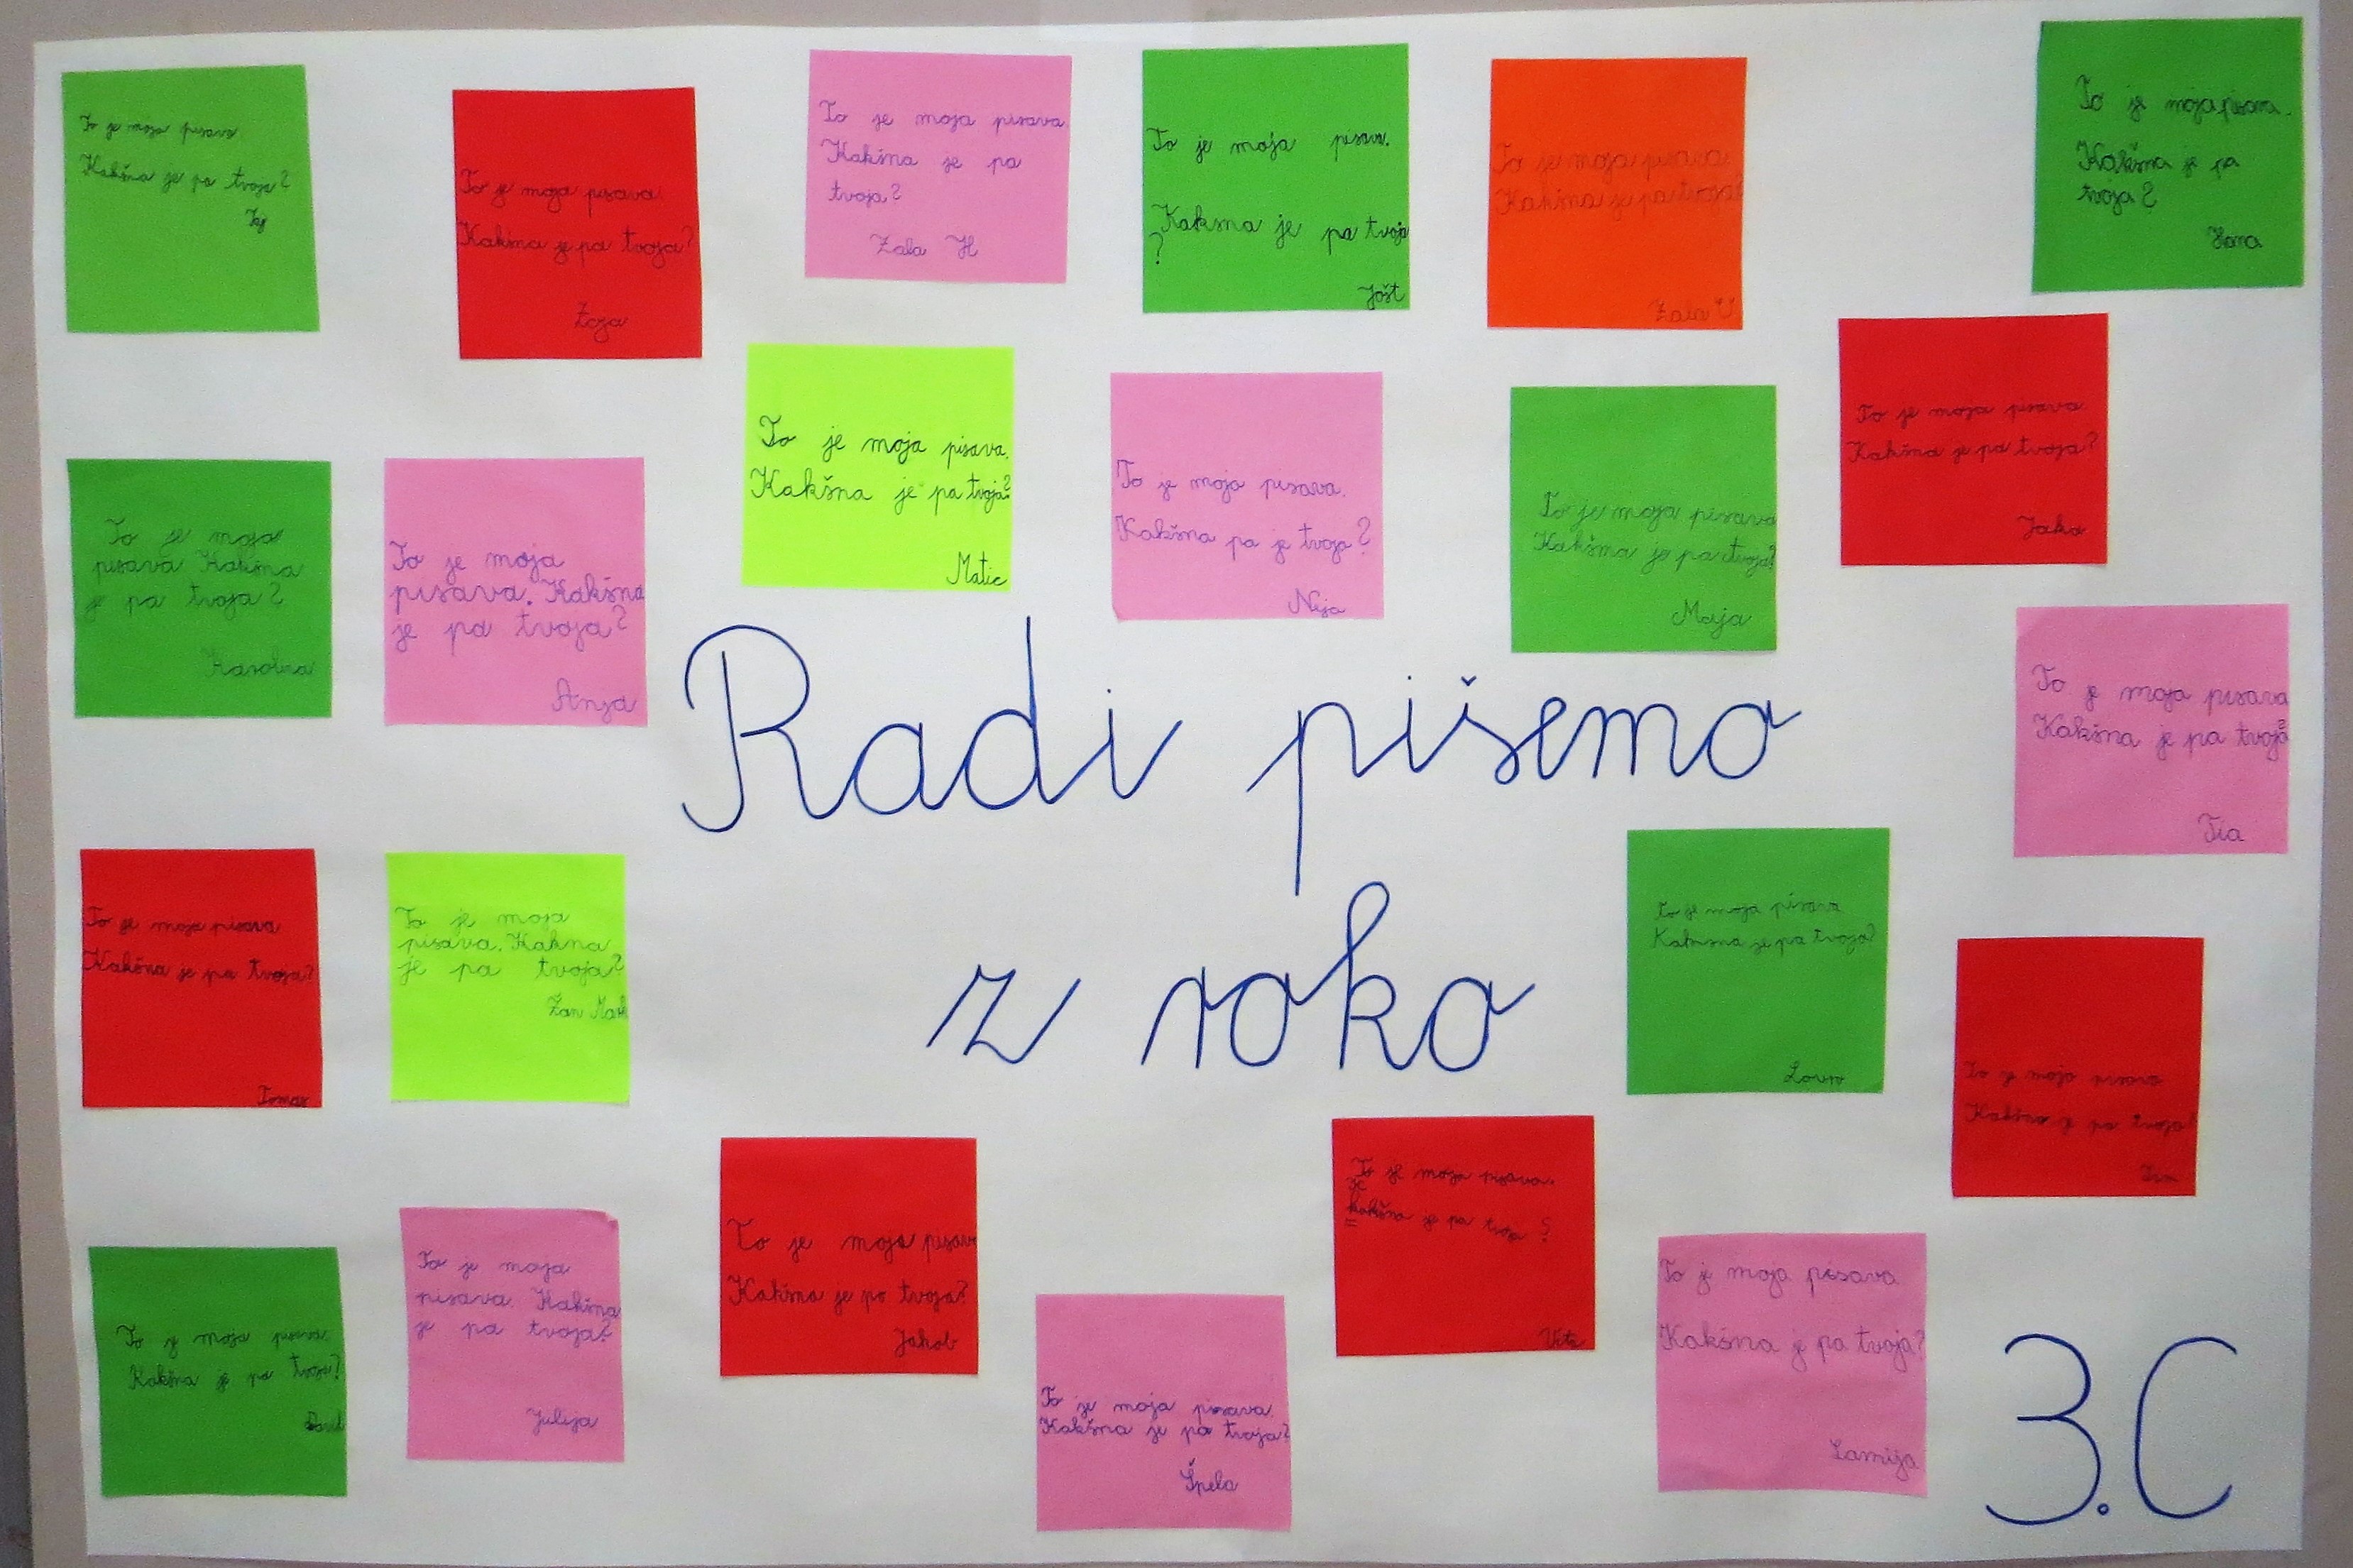 To je moja pisava
Kakšna je pa tvoja?
To je moja pisava.
Kakšna je pa tvoja?
Zoja
To je moja pisava.
Kakšna je pa
tvoja?
Zala H
To je moja pisava.
Kaksna je pa tvoja
?
Jošt
To je moja pisava
Kakšna je pa tvoja?
Zala U
To je moja pisava.
Kakšna je pa
tvoja?
Hana
To je moja pisava.
Kakšna je pa tvoja?
Matic
To je moja pisava.
Kakšna pa je tvoja?
Neja
To je moja pisava
Kakšma je pa tvoja?
Maja
To je moja pisava
Kakšna je pa tvoja?
Jaka
To je moja
pisava Kakšna
je pa tvoja?
Karolina
To je moja
pisava. Kakšna
je pa tvoja?
Anja
Radi pišemo
z roko
To je moja pisava
Kakšna je pa tvoja?
Tia
To je moja pisava
Kakšna je pa tvoja?
Tomas
To je moja
pisava. Kakna
je pa tvoja?
Žan Mark
To je moja pisava
Kakšna je pa tvoja?
Lovro
To je moja pisava
Kakšna je pa tvoja?
To je moja pisava.
Kakšna je pa tvoja?
To je moja
pisava. Kakšna
je pa tvoja?
Julija
To je moja pisava
Kakšna je pa tvoja?
Jakob
To je moja pisava.
Kakšna je pa tvoja?
Špela
To je moja pisava.
kakšna je pa tvoja?
To je moja pisava
Kakšna je pa tvoja?
Lamija
3.C